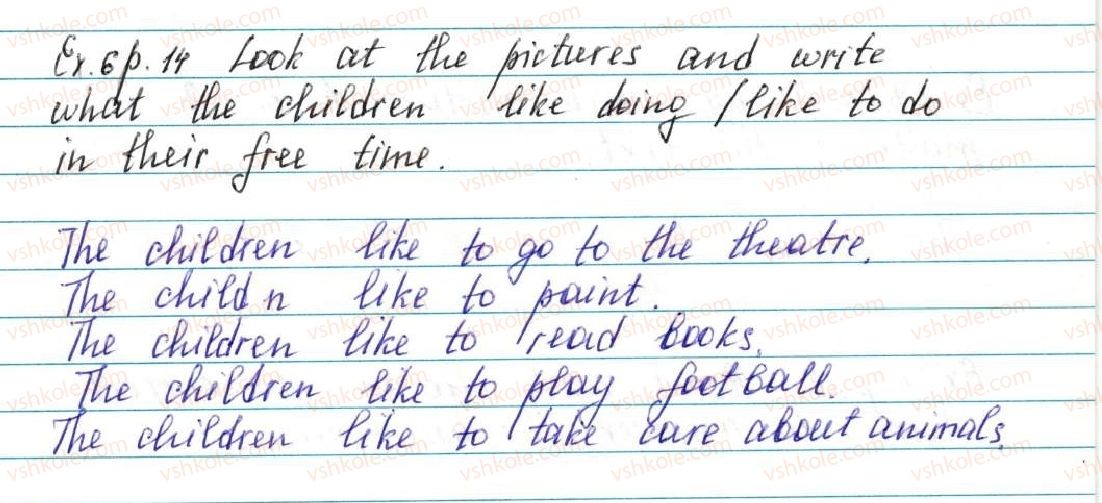 Ex. 6 p. 14 Look at the pictures and write
what the children like doing / like to do
in their free time.
The children like to go to the theatre.
The child n like to paint.
The children like to read books.
The children like to play football.
The children like to take care about animals.